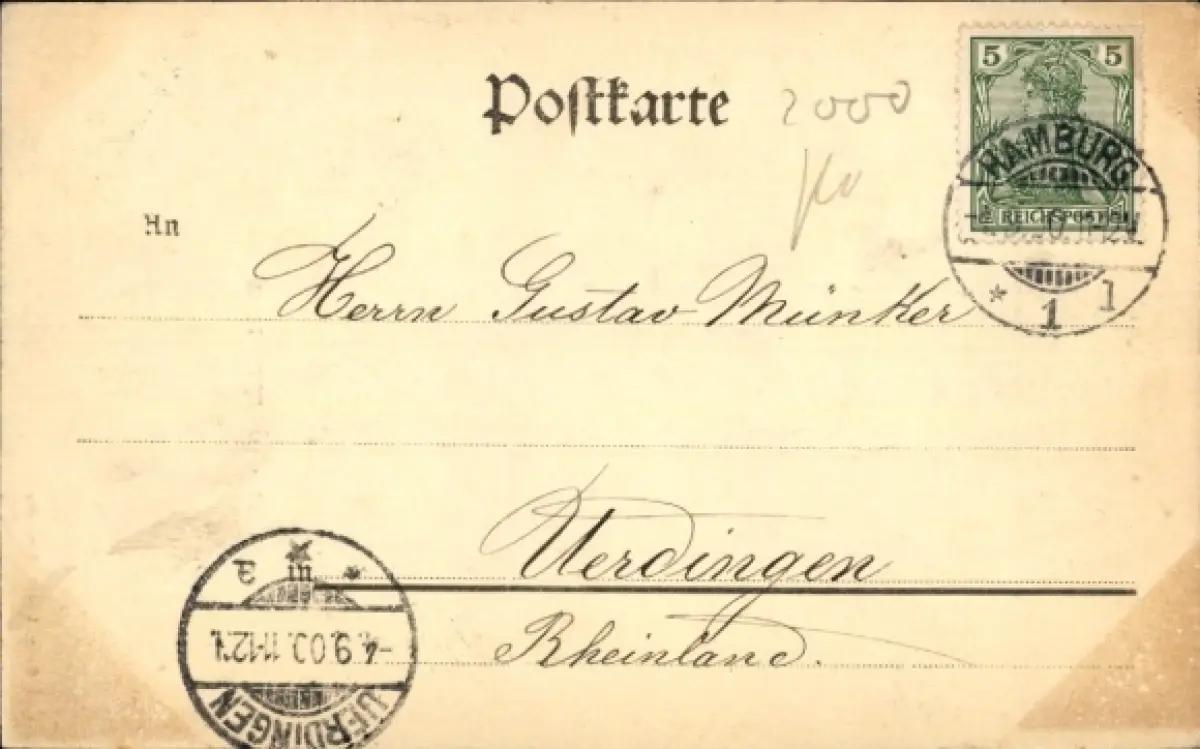 Postkarte
2000
5 5
REICHSPOST
HAMBURG
* 1 l
An
Herrn Gustav Münker
in Uerdingen
Rheinland.
* *
-4.9.00. 11-12V.
UERDINGEN